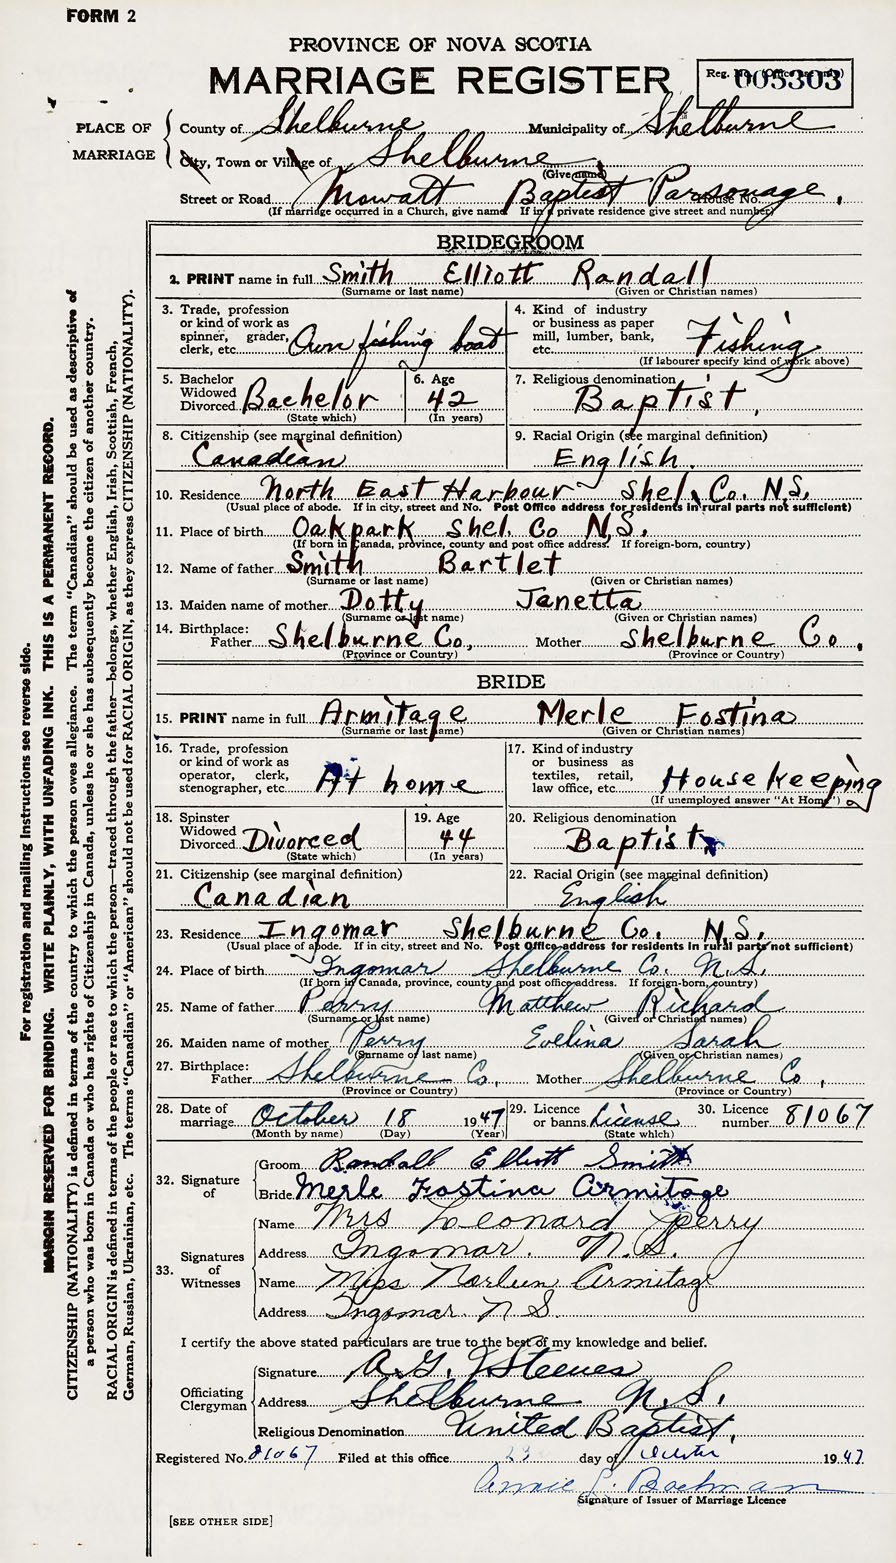 FORM 2
PROVINCE OF NOVA SCOTIA
MARRIAGE REGISTER
Reg. No. (Office use only) 005303
PLACE OF MARRIAGE
County of Shelburne Municipality of Shelburne
City, Town or Village of Shelburne
(Give name)
Street or Road Mowatt Baptist Parsonage. House No.
(If marriage occurred in a Church, give name If in a private residence give street and number)
BRIDEGROOM
2. PRINT name in full Smith Elliott Randall
(Surname or last name) (Given or Christian names)
3. Trade, profession or kind of work as spinner, grader, clerk, etc. Own fishing boat
4. Kind of industry or business as paper mill, lumber, bank, etc. Fishing
(If labourer specify kind of work above)
5. Bachelor Widowed Divorced Bachelor
(State which)
6. Age 42
(In years)
7. Religious denomination Baptist.
8. Citizenship (see marginal definition) Canadian
9. Racial Origin (see marginal definition) English.
10. Residence North East Harbour Shel. Co. N.S.
(Usual place of abode. If in city, street and No. Post Office address for residents in rural parts not sufficient)
11. Place of birth Oakpark Shel. Co N.S.
(If born in Canada, province, county and post office address. If foreign-born, country)
12. Name of father Smith Bartlet
(Surname or last name) (Given or Christian names)
13. Maiden name of mother Dotty Janetta
(Surname or last name) (Given or Christian names)
14. Birthplace: Father Shelburne Co, Mother Shelburne Co.
(Province or Country) (Province or Country)
BRIDE
15. PRINT name in full Armitage Merle Fostina
(Surname or last name) (Given or Christian names)
16. Trade, profession or kind of work as operator, clerk, stenographer, etc. At home
17. Kind of industry or business as textiles, retail, law office, etc. House Keeping
(If unemployed answer "At Home")
18. Spinster Widowed Divorced Divorced
(State which)
19. Age 44
(In years)
20. Religious denomination Baptist
21. Citizenship (see marginal definition) Canadian
22. Racial Origin (see marginal definition) English
23. Residence Ingomar Shelburne Co. N.S.
(Usual place of abode. If in city, street and No. Post Office address for residents in rural parts not sufficient)
24. Place of birth Ingomar Shelburne Co. N.S.
(If born in Canada, province, county and post office address. If foreign-born, country)
25. Name of father Perry Matthew Richard
(Surname or last name) (Given or Christian names)
26. Maiden name of mother Perry Evelina Sarah
(Surname or last name) (Given or Christian names)
27. Birthplace: Father Shelburne Co, Mother Shelburne Co,
(Province or Country) (Province or Country)
28. Date of marriage October 18 1947
(Month by name) (Day) (Year)
29. Licence or banns License
(State which)
30. Licence number 81067
32. Signature of
Groom Randall Elliott Smith
Bride Merle Fostina Armitage
33. Signatures of Witnesses
Name Mrs Leonard Perry
Address Ingomar. N.S.
Name Miss Norleen Armitage
Address Ingomar. N S.
I certify the above stated particulars are true to the best of my knowledge and belief.
Officiating Clergyman
Signature A. G. Steeves
Address Shelburne N.S.
Religious Denomination United Baptist.
Registered No. 81067 Filed at this office 23 day of October 1947
Annie L. Bachman
Signature of Issuer of Marriage Licence
[SEE OTHER SIDE]
For registration and mailing instructions see reverse side.
MARGIN RESERVED FOR BINDING. WRITE PLAINLY, WITH UNFADING INK. THIS IS A PERMANENT RECORD.
CITIZENSHIP (NATIONALITY) is defined in terms of the country to which the person owes allegiance. The term "Canadian" should be used as descriptive of
a person who was born in Canada or who has rights of Citizenship in Canada, unless he or she has subsequently become the citizen of another country.
RACIAL ORIGIN is defined in terms of the people or race to which the person—traced through the father—belongs, whether English, Irish, Scottish, French,
German, Russian, Ukrainian, etc. The terms "Canadian" or "American" should not be used for RACIAL ORIGIN, as they express CITIZENSHIP (NATIONALITY).